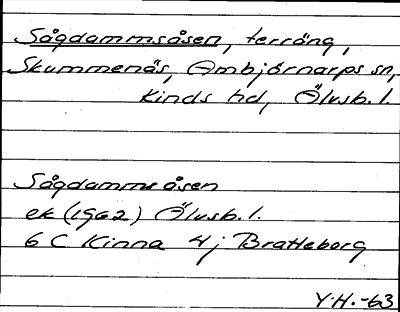 Sågdammsåsen, terräng,
Skummenäs, Ambjörnarps sn,
Kinds hd, Älvsb. l.
Sågdammsåsen
ek (1962) Älvsb. l.
6 C Kinna 4j Bratteborg
Y.H.-63